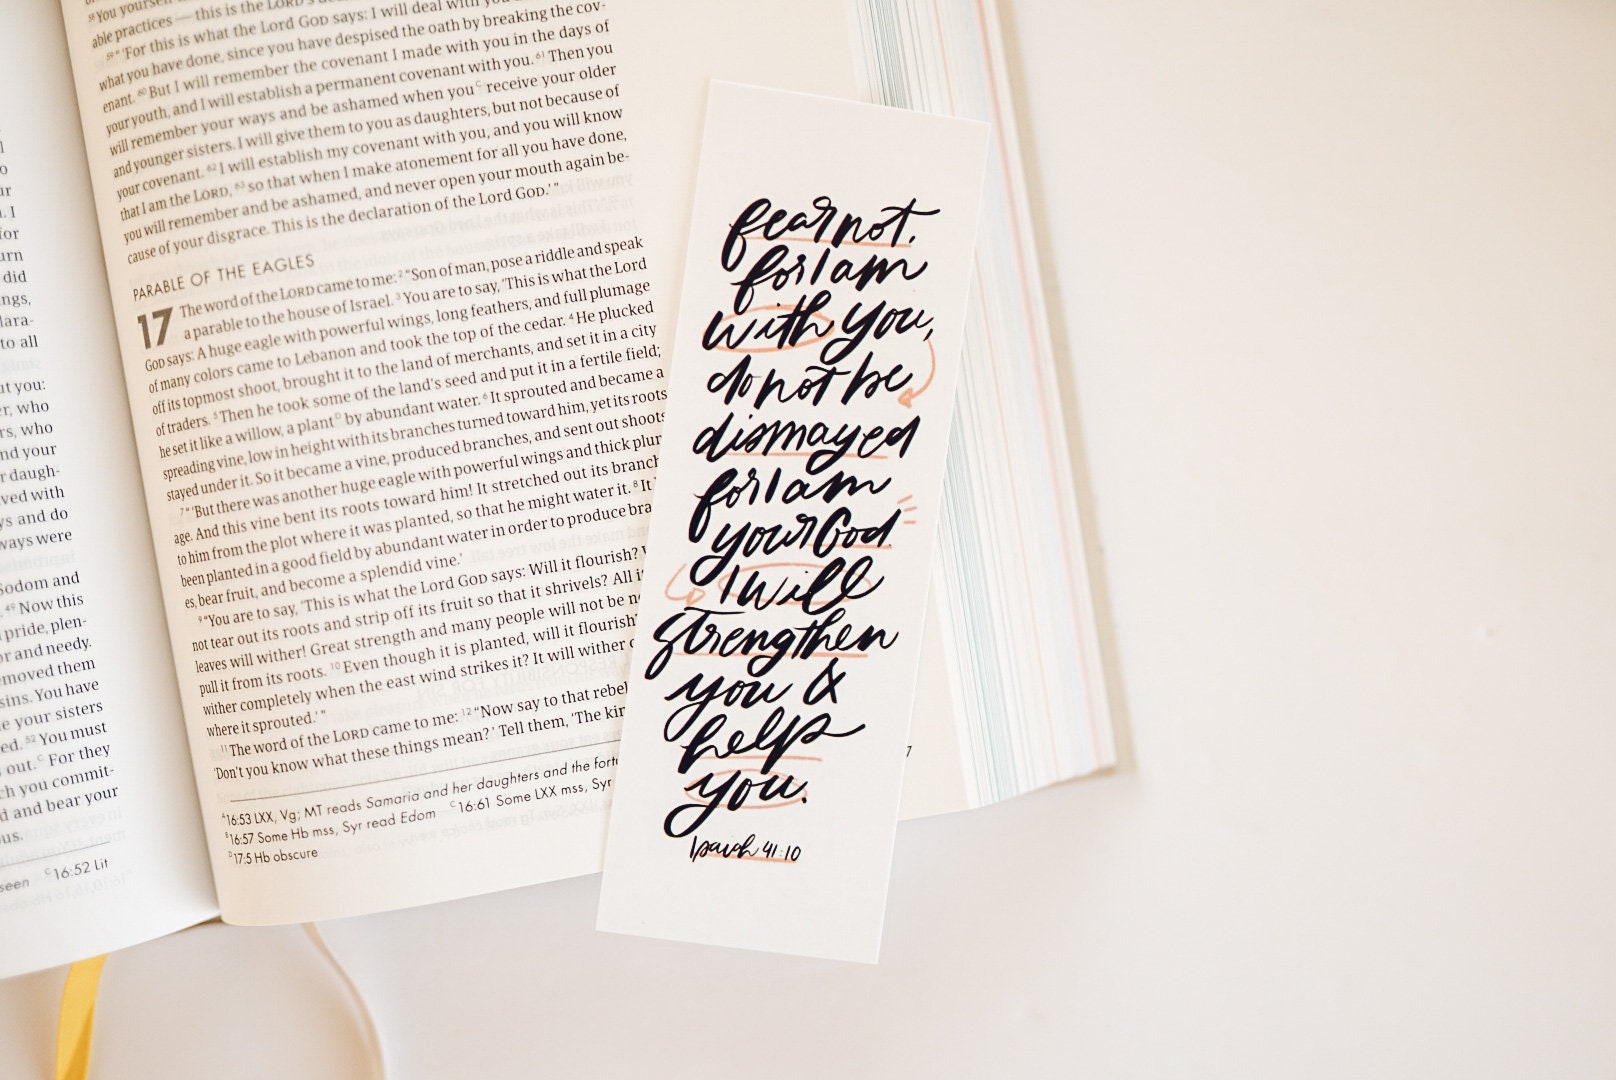 l
o
ur
. I
for
urn
did
ngs,
lara-
to all
ut you:
er, who
rs, who
nd your
r daugh-
ved with
ys and do
ways were
Sodom and
. 49 Now this
pride, plen-
or and needy.
emoved them
sins. You have
e your sisters
ed. 52 You must
out.C For they
ch you commit-
d and bear your
us.
seen C16:52 Lit
58 You yourself
able practices — this is the LORD's
59 " 'For this is what the Lord GOD says: I will deal with you
what you have done, since you have despised the oath by breaking the cov-
enant. 60 But I will remember the covenant I made with you in the days of
your youth, and I will establish a permanent covenant with you. 61 Then you
will remember your ways and be ashamed when you C receive your older
and younger sisters. I will give them to you as daughters, but not because of
your covenant. 62 I will establish my covenant with you, and you will know
that I am the LORD, 63 so that when I make atonement for all you have done,
you will remember and be ashamed, and never open your mouth again be-
cause of your disgrace. This is the declaration of the Lord GOD.' "
PARABLE OF THE EAGLES
17 The word of the LORD came to me: 2 "Son of man, pose a riddle and speak
a parable to the house of Israel. 3 You are to say, 'This is what the Lord
GOD says: A huge eagle with powerful wings, long feathers, and full plumage
of many colors came to Lebanon and took the top of the cedar. 4 He plucked
off its topmost shoot, brought it to the land of merchants, and set it in a city
of traders. 5 Then he took some of the land's seed and put it in a fertile field;
he set it like a willow, a plant D by abundant water. 6 It sprouted and became a
spreading vine, low in height with its branches turned toward him, yet its roots
stayed under it. So it became a vine, produced branches, and sent out shoots
7 " 'But there was another huge eagle with powerful wings and thick plum
age. And this vine bent its roots toward him! It stretched out its branch
to him from the plot where it was planted, so that he might water it. 8 It
been planted in a good field by abundant water in order to produce bra
es, bear fruit, and become a splendid vine.'
9 "You are to say, 'This is what the Lord GOD says: Will it flourish?
not tear out its roots and strip off its fruit so that it shrivels? All it
leaves will wither! Great strength and many people will not be ne
pull it from its roots. 10 Even though it is planted, will it flourish
wither completely when the east wind strikes it? It will wither o
where it sprouted.' "
11 The word of the LORD came to me: 12 "Now say to that rebel
'Don't you know what these things mean?' Tell them, 'The kin
A16:53 LXX, Vg; MT reads Samaria and her daughters and the fortu
B16:57 Some Hb mss, Syr read Edom C16:61 Some LXX mss, Syr
D17:5 Hb obscure
7
fear not,
for I am
with you,
do not be
dismayed
for I am
your God.
I will
strengthen
you &
help
you.
Isaiah 41:10